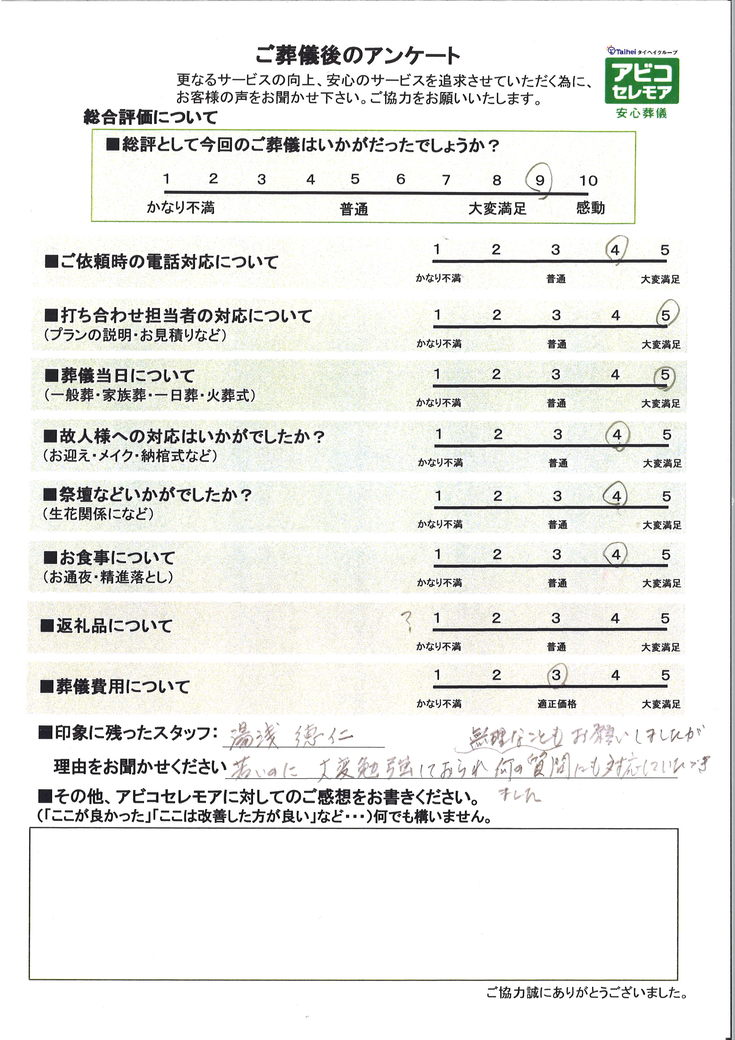 ご葬儀後のアンケート
Taihei タイヘイグループ
アビコ
セレモア
安心葬儀
更なるサービスの向上、安心のサービスを追求させていただく為に、
お客様の声をお聞かせ下さい。ご協力をお願いいたします。
総合評価について
■総評として今回のご葬儀はいかがだったでしょうか？
1 2 3 4 5 6 7 8 9 10
かなり不満 普通 大変満足 感動
■ご依頼時の電話対応について
1 2 3 4 5
かなり不満 普通 大変満足
■打ち合わせ担当者の対応について
(プランの説明・お見積りなど)
1 2 3 4 5
かなり不満 普通 大変満足
■葬儀当日について
(一般葬・家族葬・一日葬・火葬式)
1 2 3 4 5
かなり不満 普通 大変満足
■故人様への対応はいかがでしたか？
(お迎え・メイク・納棺式など)
1 2 3 4 5
かなり不満 普通 大変満足
■祭壇などいかがでしたか？
(生花関係になど)
1 2 3 4 5
かなり不満 普通 大変満足
■お食事について
(お通夜・精進落とし)
1 2 3 4 5
かなり不満 普通 大変満足
■返礼品について
? 1 2 3 4 5
かなり不満 普通 大変満足
■葬儀費用について
1 2 3 4 5
かなり不満 適正価格 大変満足
■印象に残ったスタッフ: 湯浅 徳仁
無理なこともお願いしましたが
理由をお聞かせください 若いのに 大変勉強しておられ 何の質問にも対応していただき
ました
■その他、アビコセレモアに対してのご感想をお書きください。
(「ここが良かった」「ここは改善した方が良い」など・・・)何でも構いません。
ご協力誠にありがとうございました。